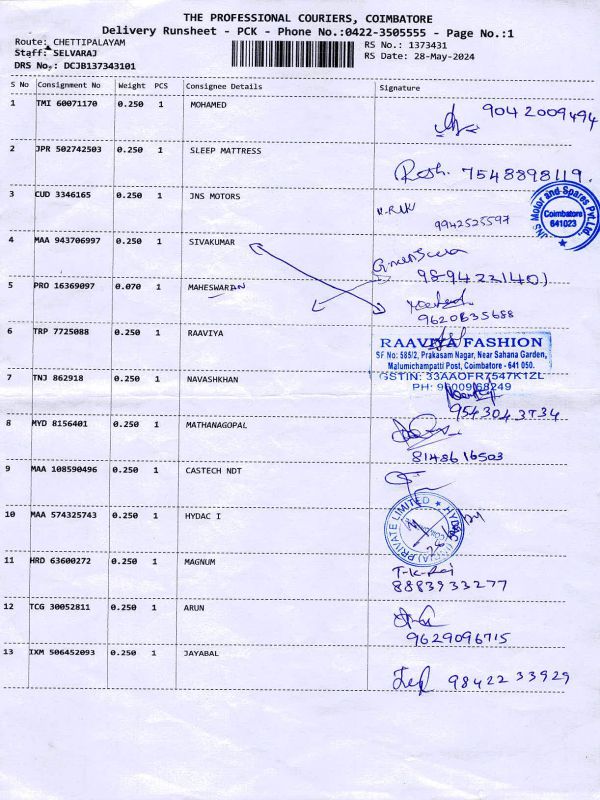 THE PROFESSIONAL COURIERS, COIMBATORE
Delivery Runsheet - PCK - Phone No.:0422-3505555 - Page No.:1
Route: CHETTIPALAYAM
Staff: SELVARAJ
DRS No.: DCJB137343101
RS No.: 1373431
RS Date: 28-May-2024
S No Consignment No Weight PCS Consignee Details Signature
1 TMI 60071170 0.250 1 MOHAMED
9042009494
2 JPR 502742503 0.250 1 SLEEP MATTRESS
7548898119
3 CUD 3346165 0.250 1 JNS MOTORS
9942525597
JNS Motor and Spares Pvt.Ltd.
Coimbatore
641023
4 MAA 943706997 0.250 1 SIVAKUMAR
5 PRO 16369097 0.070 1 MAHESWARAN
9620835688
6 TRP 7725088 0.250 1 RAAVIYA
RAAVIYA FASHION
SF No: 585/2, Prakasam Nagar, Near Sahana Garden,
Malumichampatti Post, Coimbatore - 641 050.
GSTIN: 33AAOFR7547K1ZL
PH: 9600968249
7 TNJ 862918 0.250 1 NAVASHKHAN
9543043734
8 MYD 8156401 0.250 1 MATHANAGOPAL
8148616503
9 MAA 108590496 0.250 1 CASTECH NDT
10 MAA 574325743 0.250 1 HYDAC I
HYDAC (INDIA) PRIVATE LIMITED
11 HRD 63600272 0.250 1 MAGNUM
T-K-Raj
8883933277
12 TCG 30052811 0.250 1 ARUN
9629096715
13 IXM 506452093 0.250 1 JAYABAL
9842233929